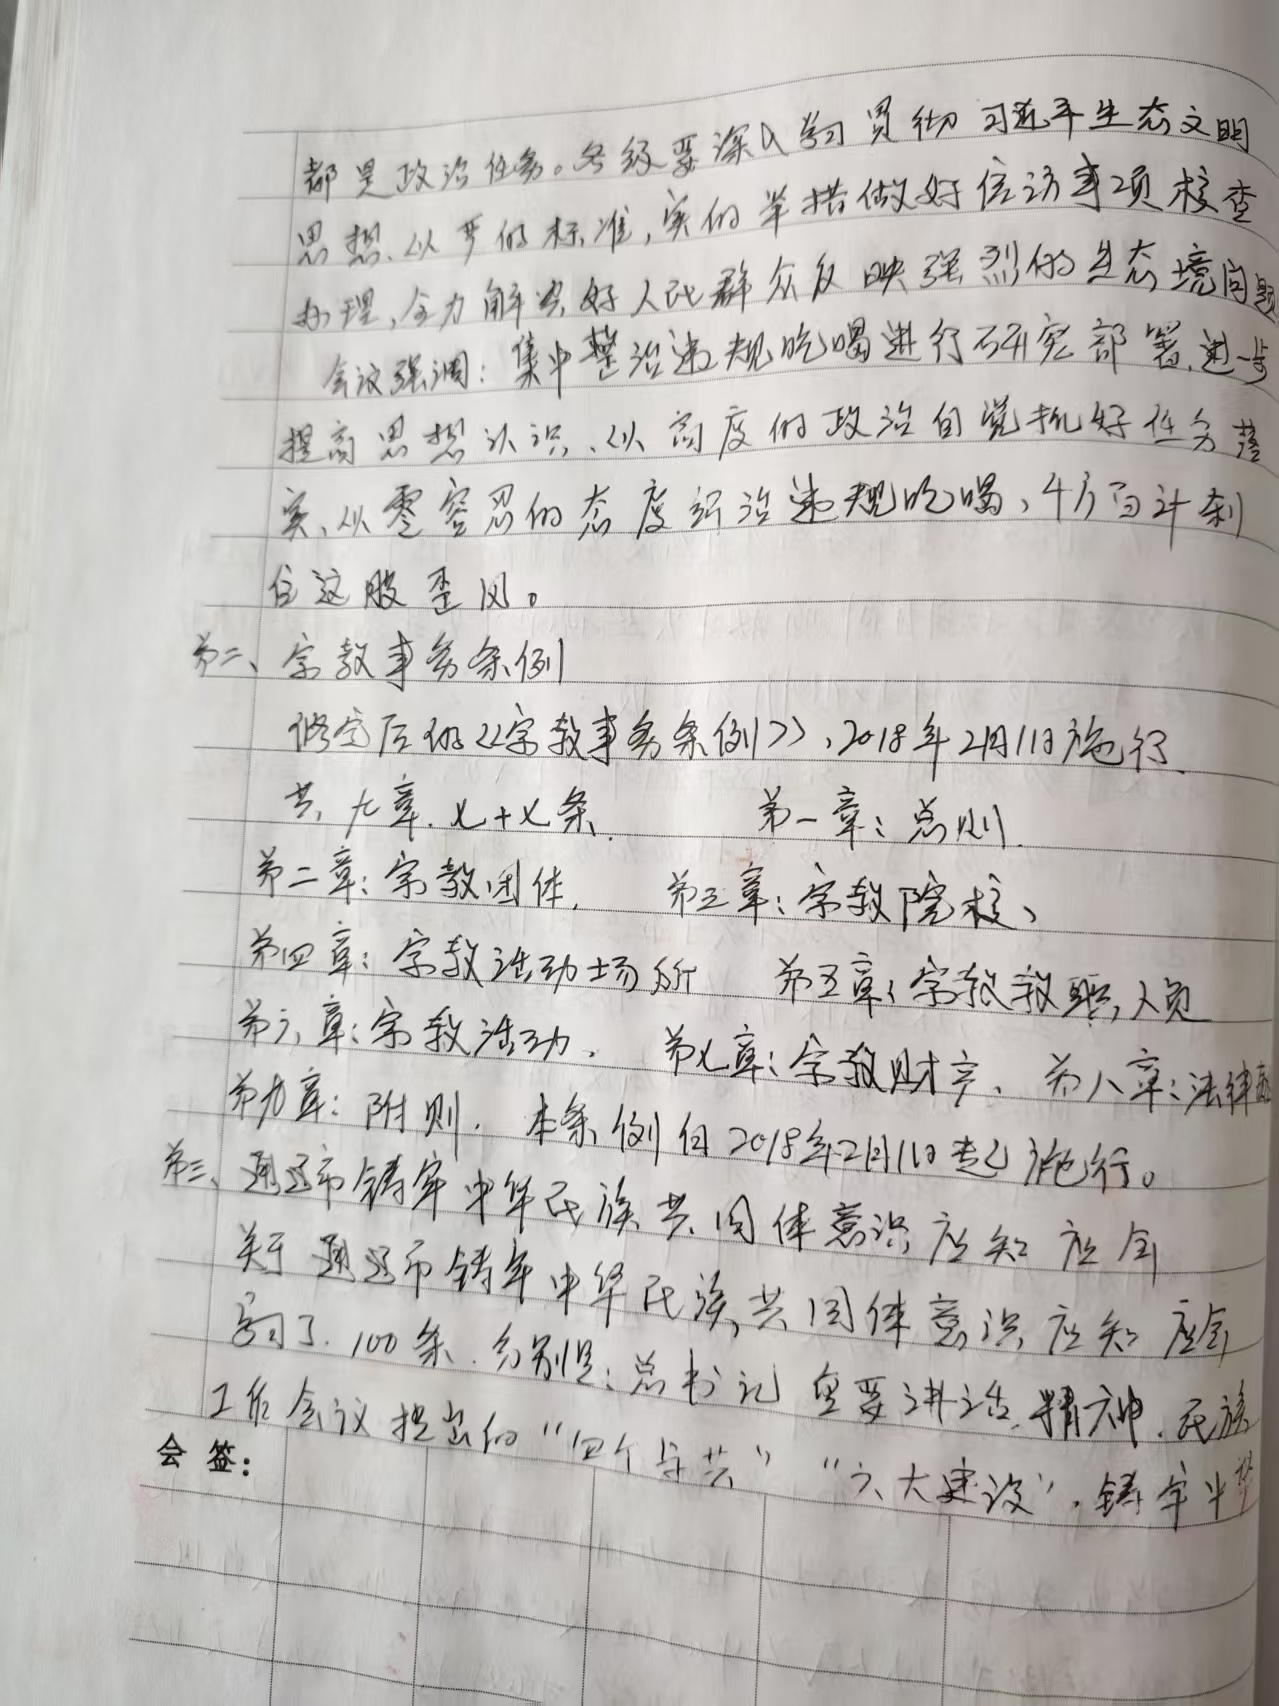 都是政治任务。各级要深入学习贯彻习近平生态文明
思想、以严的标准,实的举措做好信访事项核查
办理,全力解决好人民群众反映强烈的生态境问题
会议强调:集中整治违规吃喝进行研究部署,进一步
提高思想认识、以高度的政治自觉抓好任务落
实、以零容忍的态度纠治违规吃喝、千方百计刹
住这股歪风。
第二、宗教事务条例
修定后的《宗教事务条例》,2018年2月1日施行.
共九章.七十七条. 第一章:总则.
第二章:宗教团体. 第三章:宗教院校、
第四章:宗教活动场所 第五章:宗教教职人员
第六章:宗教活动. 第七章:宗教财产. 第八章:法律
第九章:附则. 本条例自2018年2月1日起施行。
第三、通辽市铸牢中华民族共同体意识应知应会
关于通辽市铸牢中华民族共同体意识应知应会
学习了.100条.分别是:总书记重要讲话精神.民族
工作会议提出的“四个与共”“六大建设”.铸牢中华
会签: